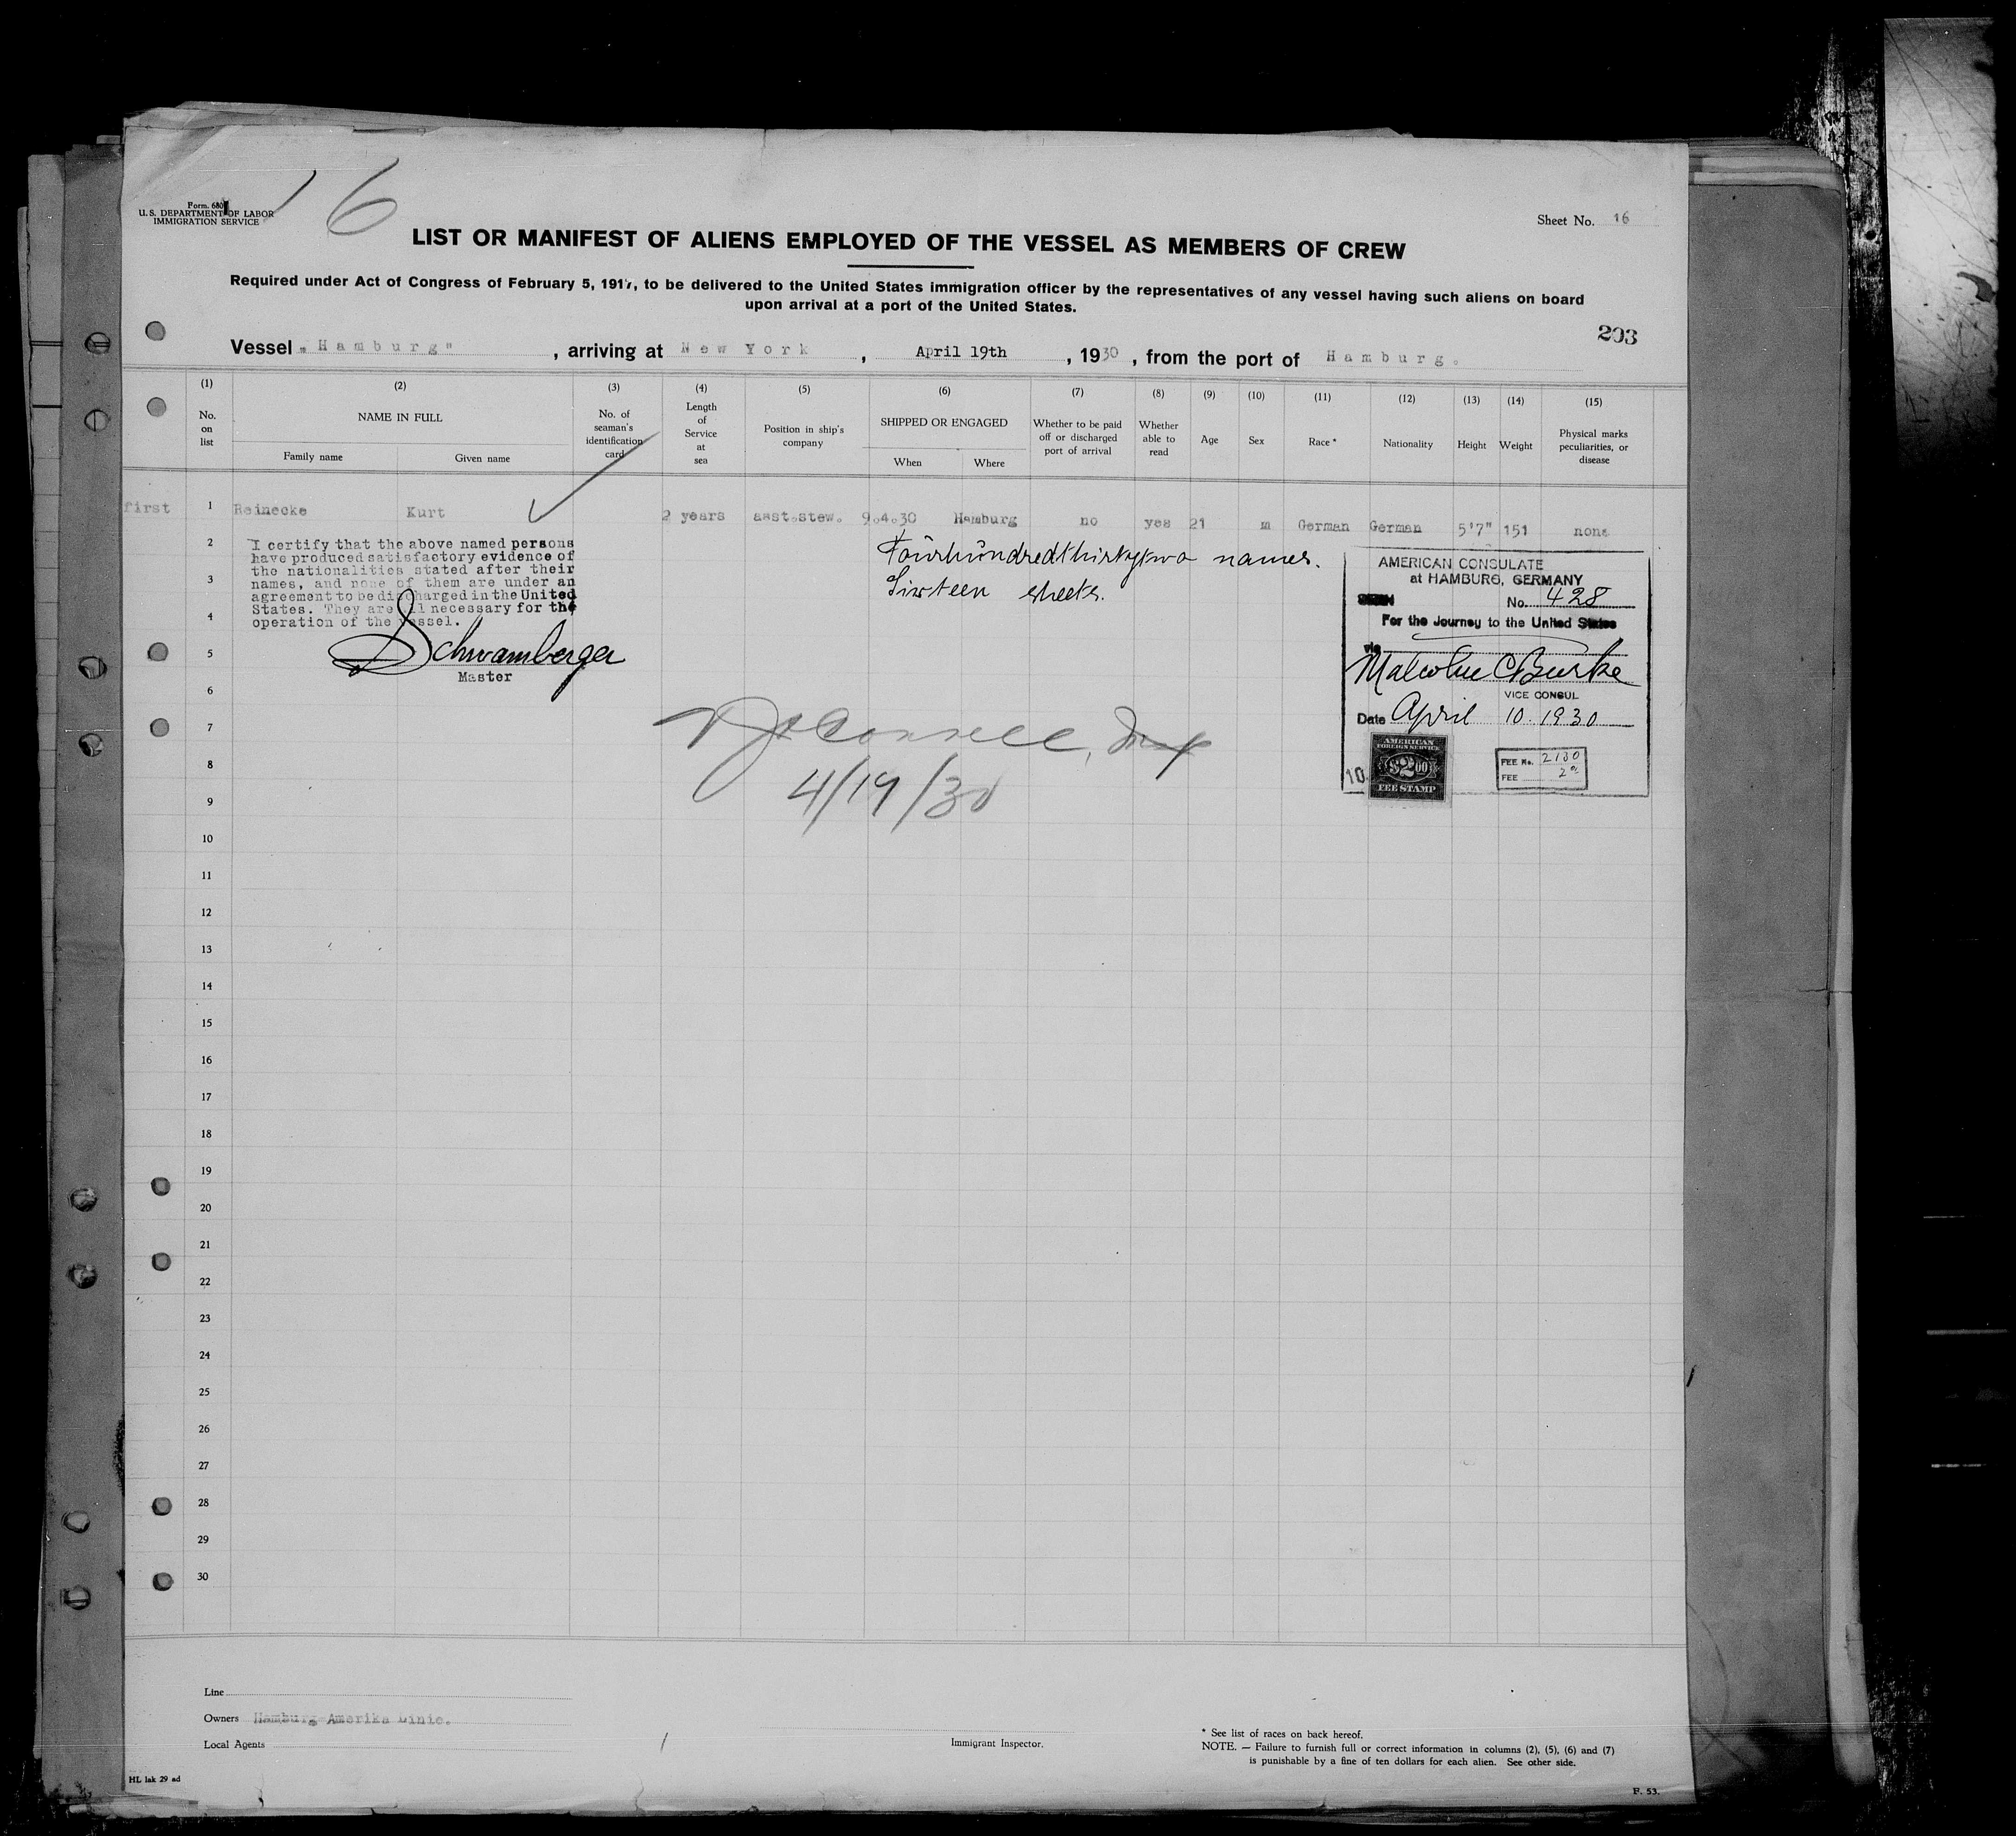 16
Form. 680
U.S. DEPARTMENT OF LABOR
IMMIGRATION SERVICE
Sheet No. 16
LIST OR MANIFEST OF ALIENS EMPLOYED OF THE VESSEL AS MEMBERS OF CREW
Required under Act of Congress of February 5, 1917, to be delivered to the United States immigration officer by the representatives of any vessel having such aliens on board
upon arrival at a port of the United States.
203
Vessel „Hamburg" , arriving at New York , April 19th , 1930 , from the port of Hamburg.
(1) (2) (3) (4) (5) (6) (7) (8) (9) (10) (11) (12) (13) (14) (15)
No. on list
NAME IN FULL
Family name Given name
No. of seaman's identification card
Length of Service at sea
Position in ship's company
SHIPPED OR ENGAGED
When Where
Whether to be paid off or discharged port of arrival
Whether able to read
Age
Sex
Race *
Nationality
Height
Weight
Physical marks peculiarities, or disease
first 1 Reinecke Kurt 2 years asst.stew. 9.4.30 Hamburg no yes 21 m German German 5'7" 151 none
2
3
4
5
6
7
8
9
10
11
12
13
14
15
16
17
18
19
20
21
22
23
24
25
26
27
28
29
30
I certify that the above named persons
have produced satisfactory evidence of
the nationalities stated after their
names, and none of them are under an
agreement to be discharged in the United
States. They are all necessary for the
operation of the vessel.
Schwamberger
Master
Fourhundredthirtytwo names.
Sixteen sheets.
AMERICAN CONSULATE
at HAMBURG, GERMANY
No. 428
For the Journey to the United States
via
Malcolm C Burke
VICE CONSUL
Date April 10. 1930
10.
AMERICAN
FOREIGN SERVICE
$2.00
FEE STAMP
FEE No. 2130
FEE 2
4/19/30
Line
Owners Hamburg-Amerika Linie.
Local Agents
Immigrant Inspector.
* See list of races on back hereof.
NOTE. — Failure to furnish full or correct information in columns (2), (5), (6) and (7)
is punishable by a fine of ten dollars for each alien. See other side.
HL lak 29 ad
F. 53.